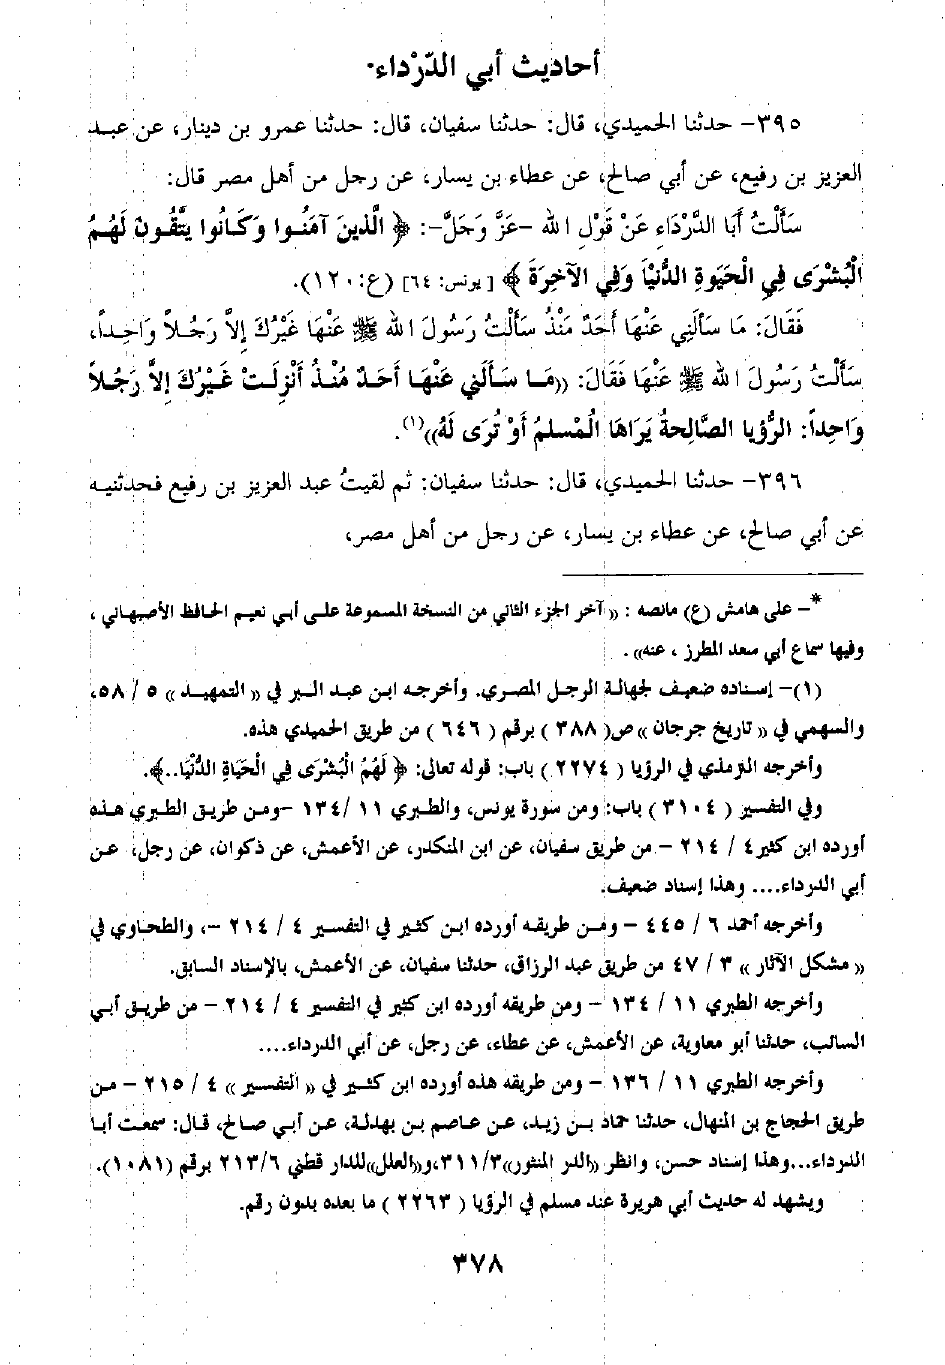 أحاديث أبي الدّرْداء*
٣٩٥- حدثنا الحميدي، قال: حدثنا سفيان، قال: حدثنا عمرو بن دينار، عن عبد
العزيز بن رفيع، عن أبي صالح، عن عطاء بن يسار، عن رجل من أهل مصر قال:
سَأَلْتُ أَبَا الدَّرْدَاءِ عَنْ قَوْلِ الله -عَزَّ وَجَلَّ-: ﴿ الَّذِينَ آمَنُوا وَكَانُوا يَتَّقُونَ لَهُمُ
الْبُشْرَى فِي الْحَيَوةِ الدُّنْيَا وَفِي الآخِرَةَ ﴾ [ يونس: ٦٤] (ع: ١٢٠).
فَقَالَ: مَا سَأَلَنِي عَنْهَا أَحَدٌ مَنْذُ سَأَلْتُ رَسُولَ الله ﷺ عَنْهَا غَيْرُكَ إِلاَّ رَجُلاً وَاحِداً،
سَأَلْتُ رَسُولَ الله ﷺ عَنْهَا فَقَالَ: ((مَا سَأَلَنِي عَنْهَا أَحَدٌ مُنْذُ أُنْزِلَتْ غَيْرُكَ إِلاَّ رَجُلاً
وَاحِداً: الرُّؤْيا الصَّالِحَةُ يَرَاهَا الْمُسْلِمُ أَوْ تُرَى لَهُ))(١).
٣٩٦- حدثنا الحميدي، قال: حدثنا سفيان: ثم لقيتُ عبد العزيز بن رفيع فحدثنيه
عن أبي صالح، عن عطاء بن يسار، عن رجل من أهل مصر،
*- على هامش (ع) مانصه : (( آخر الجزء الثاني من النسخة المسموعة على أبي نعيم الحافظ الأصبهاني ،
وفيها سماع أبي سعد المطرز ، عنه)) .
(١)- إسناده ضعيف لجهالة الرجل المصري. وأخرجه ابن عبد البر في (( التمهيد )) ٥ / ٥٨،
والسهمي في (( تاريخ جرجان )) ص( ٣٨٨ ) برقم ( ٦٤٦ ) من طريق الحميدي هذه.
وأخرجه الترمذي في الرؤيا ( ٢٢٧٤ ) باب: قوله تعالى: ﴿ لَهُمُ الْبُشْرَى فِي الْحَيَاةِ الدُّنْيَا..﴾.
وفي التفسير ( ٣١٠٤ ) باب: ومن سورة يونس، والطبري ١١ /١٣٤ -ومن طريق الطبري هذه
أورده ابن كثير٤ / ٢١٤ - من طريق سفيان، عن ابن المنكدر، عن الأعمش، عن ذكوان، عن رجل، عن
أبي الدرداء.... وهذا إسناد ضعيف.
وأخرجه أحمد ٦ / ٤٤٥ - ومن طريقه أورده ابن كثير في التفسير ٤ / ٢١٤ -، والطحاوي في
(( مشكل الآثار )) ٣ / ٤٧ من طريق عبد الرزاق، حدثنا سفيان، عن الأعمش، بالإسناد السابق.
وأخرجه الطبري ١١ / ١٣٤ - ومن طريقه أورده ابن كثير في التفسير ٤ / ٢١٤ - من طريق أبي
السائب، حدثنا أبو معاوية، عن الأعمش، عن عطاء، عن رجل، عن أبي الدرداء....
وأخرجه الطبري ١١ / ١٣٦ - ومن طريقه هذه أورده ابن كثير في (( التفسير )) ٤ / ٢١٥ - من
طريق الحجاج بن المنهال، حدثنا حماد بن زيد، عن عاصم بن بهدلة، عن أبي صالح، قال: سمعت أبا
الدرداء...وهذا إسناد حسن، وانظر ((الدر المنثور))٣١١/٣،و((العلل))للدار قطني ٢١٣/٦ برقم (١٠٨١).
ويشهد له حديث أبي هريرة عند مسلم في الرؤيا ( ٢٢٦٣ ) ما بعده بدون رقم.
٣٧٨